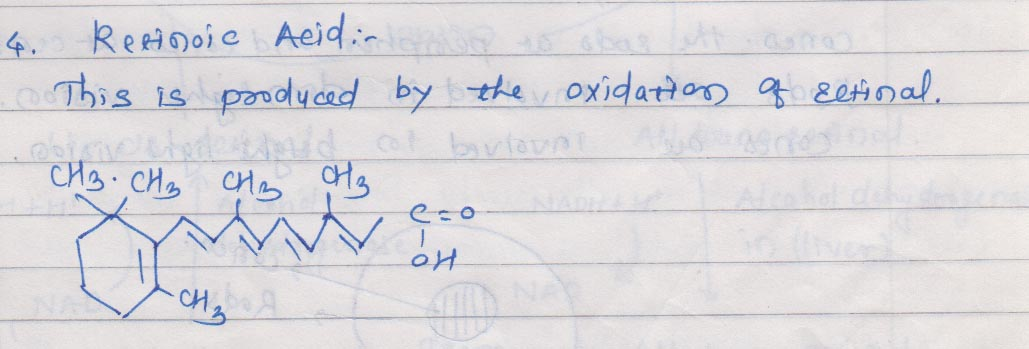 4. Retinoic Acid:-
This is produced by the oxidation of retinal.
CH3. CH3 CH3 CH3
C=O
OH
CH3